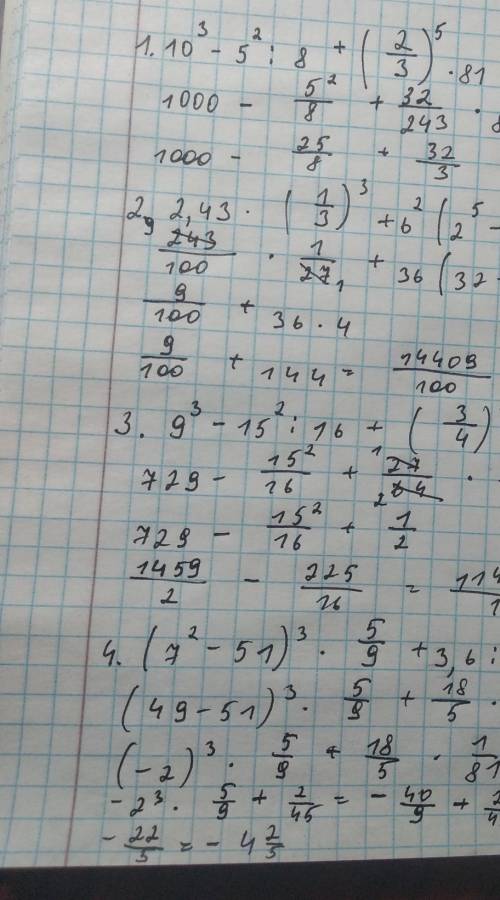 1. 10³ - 5² : 8 + (2/3)⁵ · 81
1000 - 5²/8 + 32/243 · 8
1000 - 25/8 + 32/3
2. 2,43 · (1/3)³ + 6² (2⁵ -
9 243/100 · 1/27 1 + 36 (32 -
9/100 + 36 · 4
9/100 + 144 = 14409/100
3. 9³ - 15² : 16 + (3/4)
729 - 15²/16 + 1 27/2 64 ·
729 - 15²/16 + 1/2
1459/2 - 225/16 = 114/1
4. (7² - 51)³ · 5/9 + 3,6 :
(49 - 51)³ · 5/9 + 18/5 ·
(-2)³ · 5/9 + 18/5 · 1/81
-2³ · 5/9 + 2/45 = - 40/9 + 2/4
- 22/5 = - 4 2/5